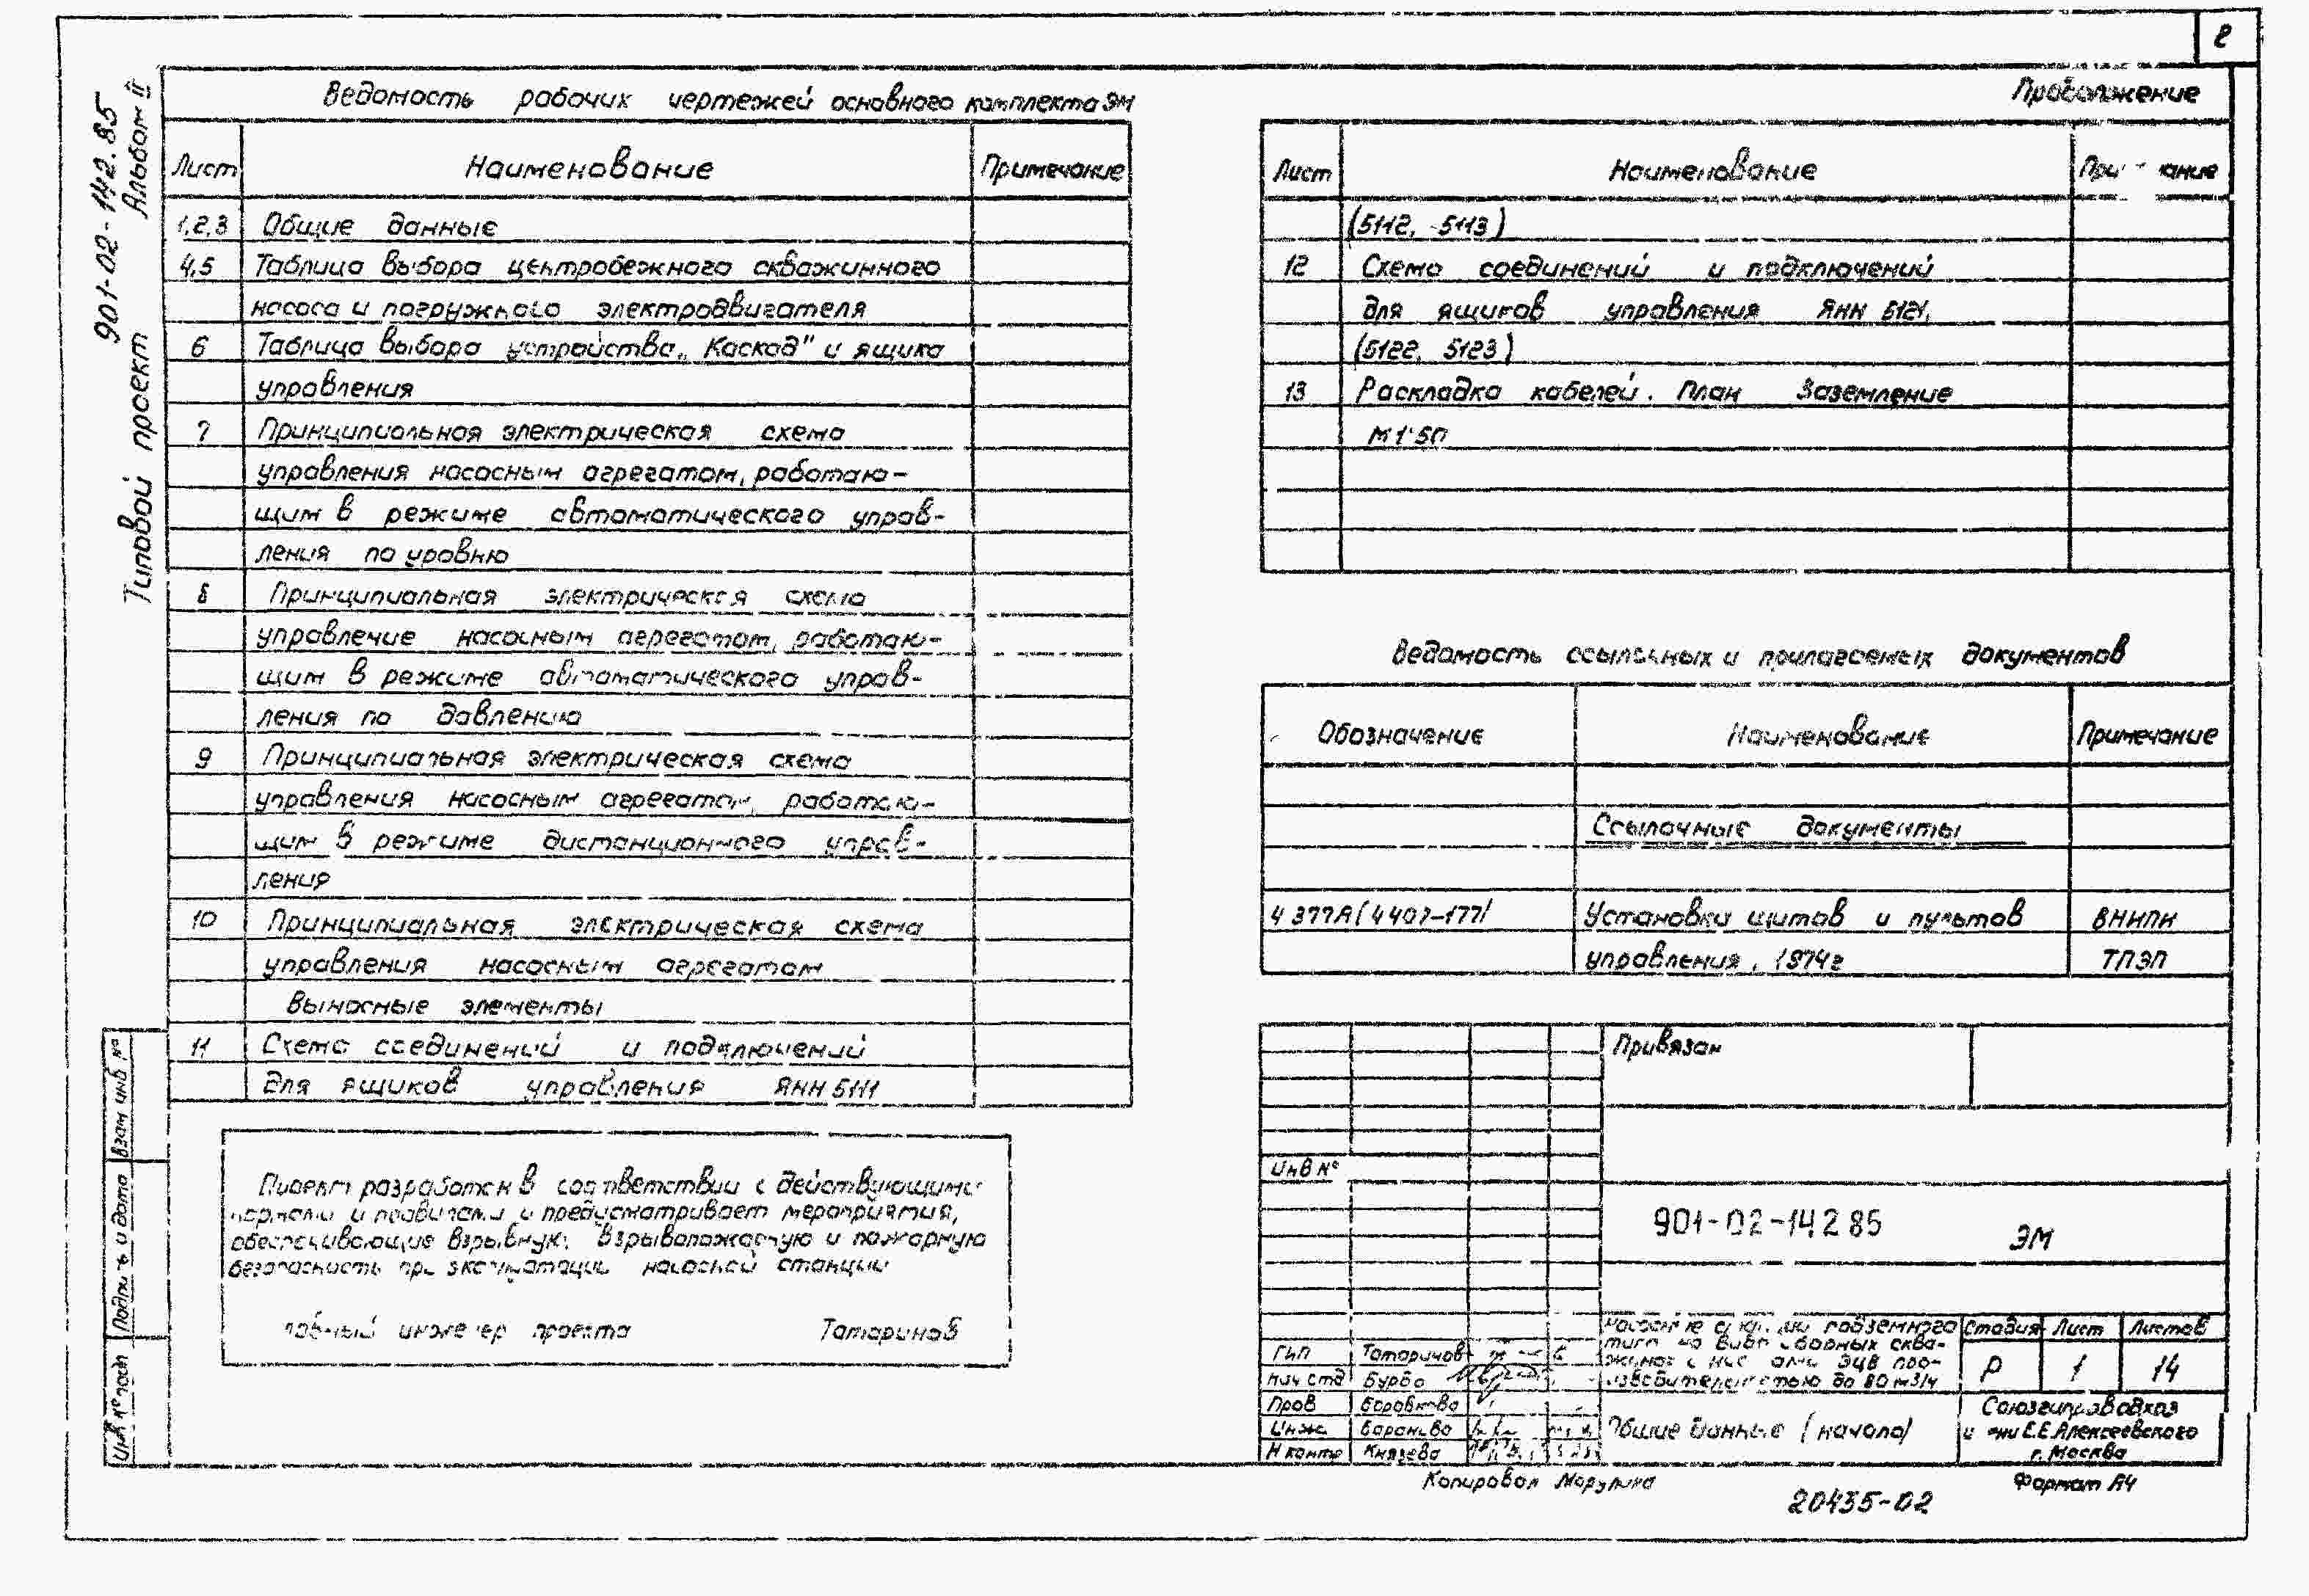 2
Типовой проект 901-02-142.85 Альбом II
Ведомость рабочих чертежей основного комплекта ЭМ
Лист Наименование Примечание
1,2,3 Общие данные
4,5 Таблица выбора центробежного скважинного
насоса и погружного электродвигателя
6 Таблица выбора устройства „Каскад" и ящика
управления
7 Принципиальная электрическая схема
управления насосным агрегатом, работаю-
щим в режиме автоматического управ-
ления по уровню
8 Принципиальная электрическая схема
управление насосным агрегатом, работаю-
щим в режиме автоматического управ-
ления по давлению
9 Принципиальная электрическая схема
управления насосным агрегатом, работаю-
щим в режиме дистанционного управ-
ления
10 Принципиальная электрическая схема
управления насосным агрегатом
Выносные элементы
11 Схема соединений и подключений
для ящиков управления ЯНН 5111
Продолжение
Лист Наименование Примечание
(5112, 5113)
12 Схема соединений и подключений
для ящиков управления ЯНН 5121,
(5122, 5123)
13 Раскладка кабелей. План Заземление
М 1:50
Ведомость ссылочных и прилагаемых документов
Обозначение Наименование Примечание
Ссылочные документы
4.377А(4407-177) Установки щитов и пультов ВНИПИ
управления, 1974г ТПЭП
Проект разработан в соответствии с действующими
нормами и правилами и предусматривает мероприятия,
обеспечивающие взрывную, взрывопожарную и пожарную
безопасность при эксплуатации насосной станции
Главный инженер проекта Татаринов
Взам инв №
Подпись и дата
Инв № подл
Привязан
Инв №
901-02-142 85 ЭМ
подземного
Стадия Лист Листов
Р 1 14
ГИП Татаринов
Нач отд Бурба
Пров Боровкова
Инж.
Н контр Князева
ЭЦВ про-
изводительностью до 80 м3/ч
Общие данные (начало)
Союзгипроводхоз
имени Е.Е.Алексеевского
г. Москва
Копировал
Формат А4
20435-02